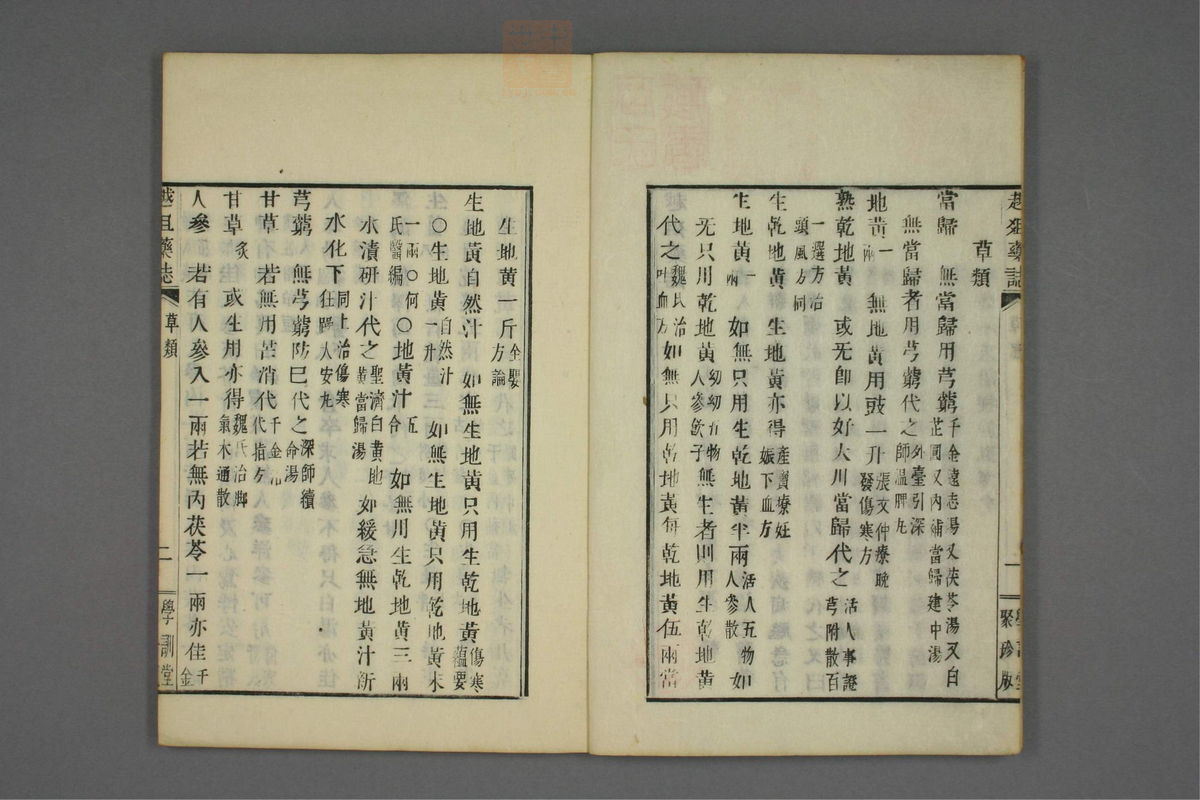 草類
當歸　無當歸用芎藭千金遠志湯又茯苓湯又白芷同又內補當歸建中湯
無當歸者用芎藭代之外臺引深師溫脾丸
地黃一兩　無地黃用豉一升張文仲療晚發傷寒方
熟乾地黃　或无卽以好大川當歸代之活人事證芎附散百
一選方治頭風方同
生乾地黃　生地黃亦得產寶療妊娠下血方
生地黃一兩　如無只用生乾地黃半兩活人五物人參散如
无只用乾地黃幼幼五物人參飲子無生者則用生乾地黃
代之魏氏治吐血方如無只用乾地黃每乾地黃伍兩當
生地黃一斤全嬰方論
生地黃自然汁　如無生地黃只用生乾地黃傷寒蘊要
○生地黃自然汁一升　如無生地黃只用乾地黃末
一兩○何氏醫編○地黃汁五合　如無用生乾地黃三兩
水漬研汁代之聖濟白黃地黃當歸湯　如緩急無地黃汁新
水化下同上治傷寒狂躁人安丸
芎藭　無芎藭防巳代之深師續命湯
甘草　若無用苦消代千金
甘草炙　或生用亦得魏氏治脚氣木通散
人參　若有人參入一兩若無內茯苓一兩亦佳千金
草類
二
學訓堂
聚珍版